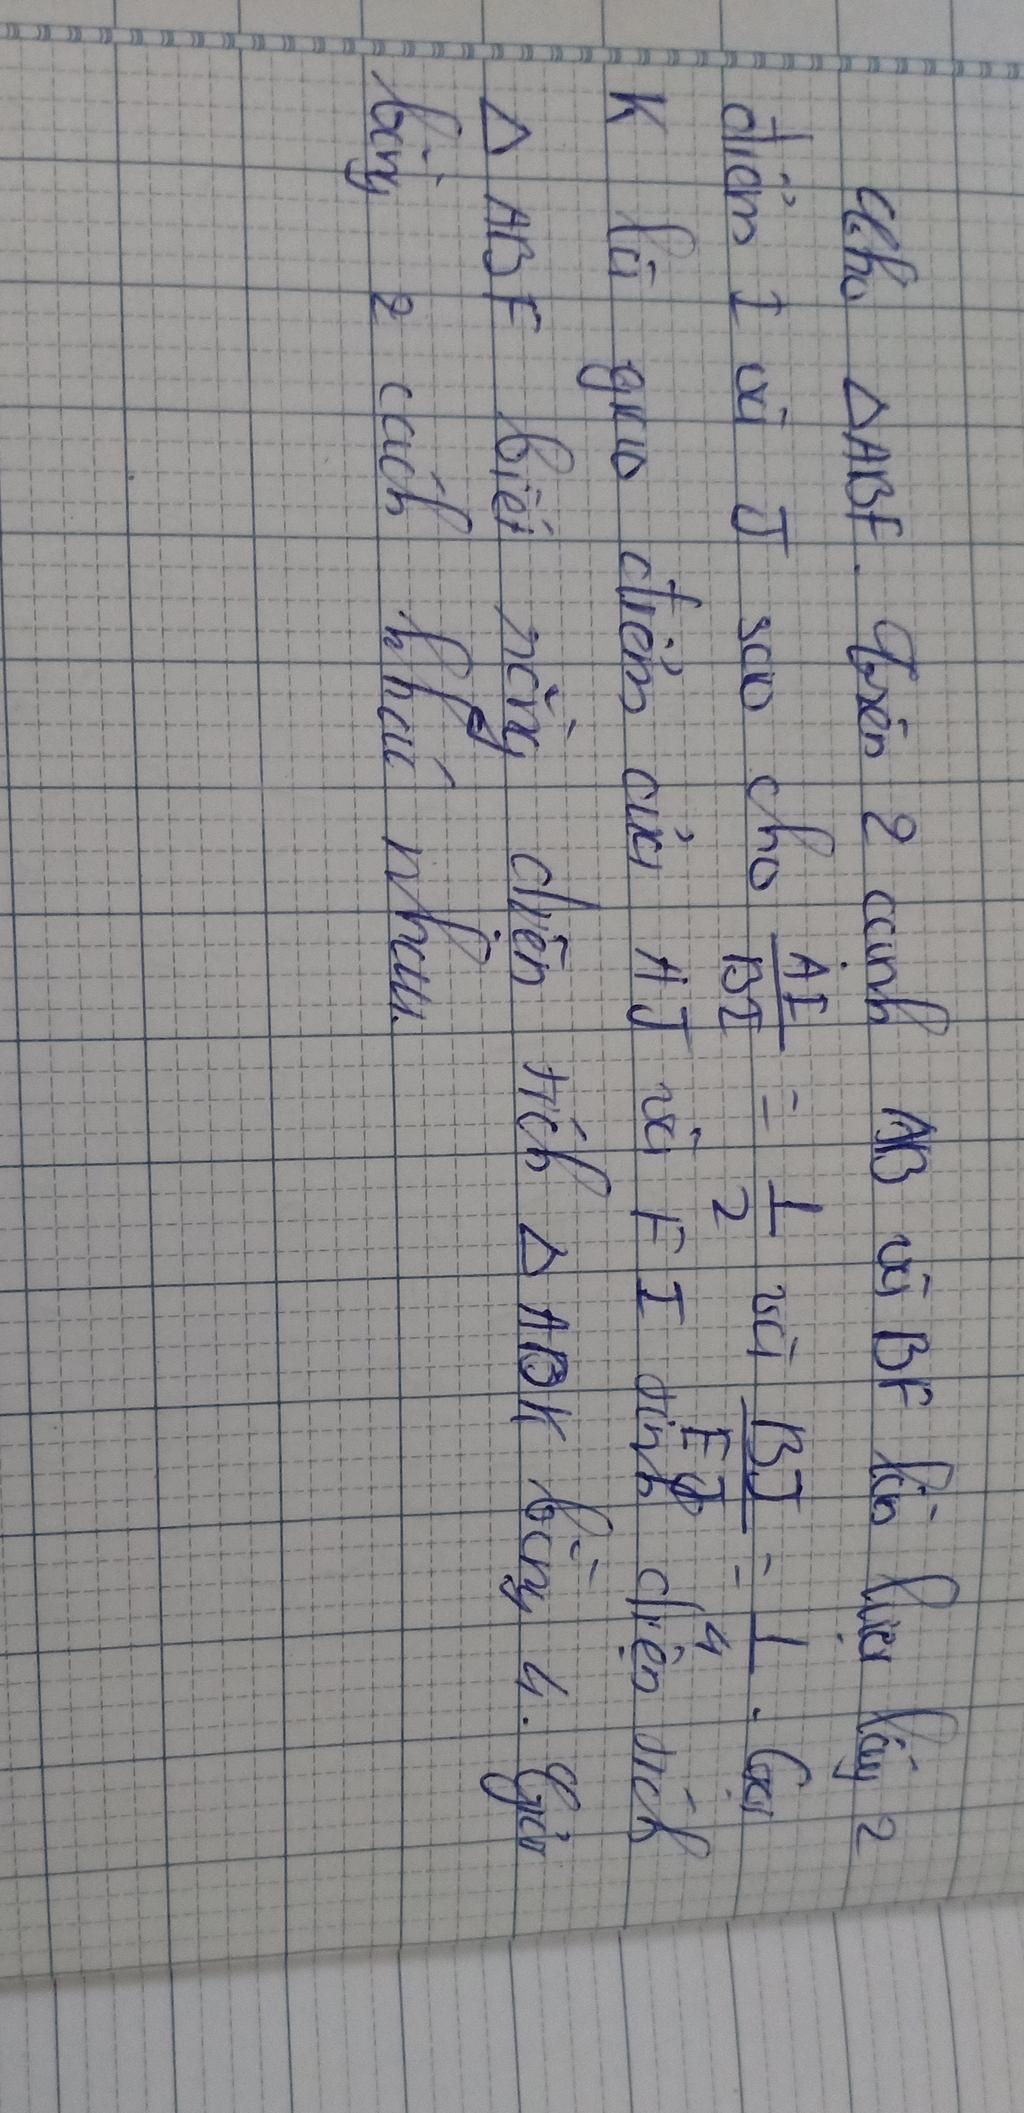 Cho △ABF. Trên 2 cạnh AB và BF lần lượt lấy 2
điểm I và J sao cho AI/BI = 1/2 và BJ/FJ = 1/4. Gọi
K là giao điểm của AJ và FI tính diện tích
△ ABF biết rằng diện tích △ ABK bằng 4. Giải
bằng 2 cách khác nhau.